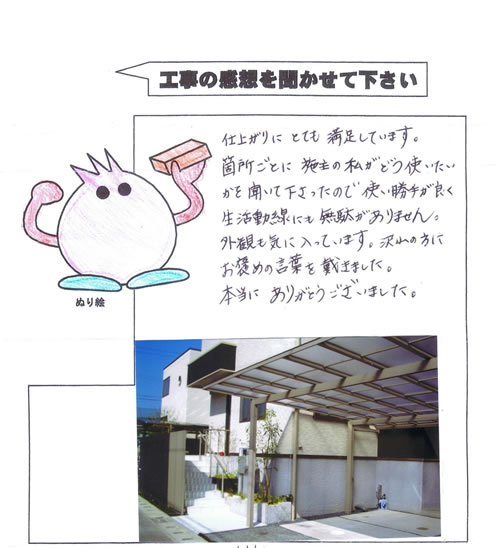 工事の感想を聞かせて下さい
仕上がりにとても満足しています。
箇所ごとに施主の私がどう使いたい
かを聞いて下さったので使い勝手が良く
生活動線にも無駄がありません。
外観も気に入っています。沢山の方に
お褒めの言葉を戴きました。
本当にありがとうございました。
ぬり絵